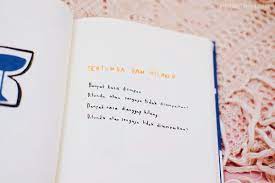 TERTUNDA DAN HILANG
Banyak kata disimpan
Ditunda atau sengaja tidak disampaikan
Banyak kata dianggap hilang
Ditunda atau sengaja tidak disampaikan